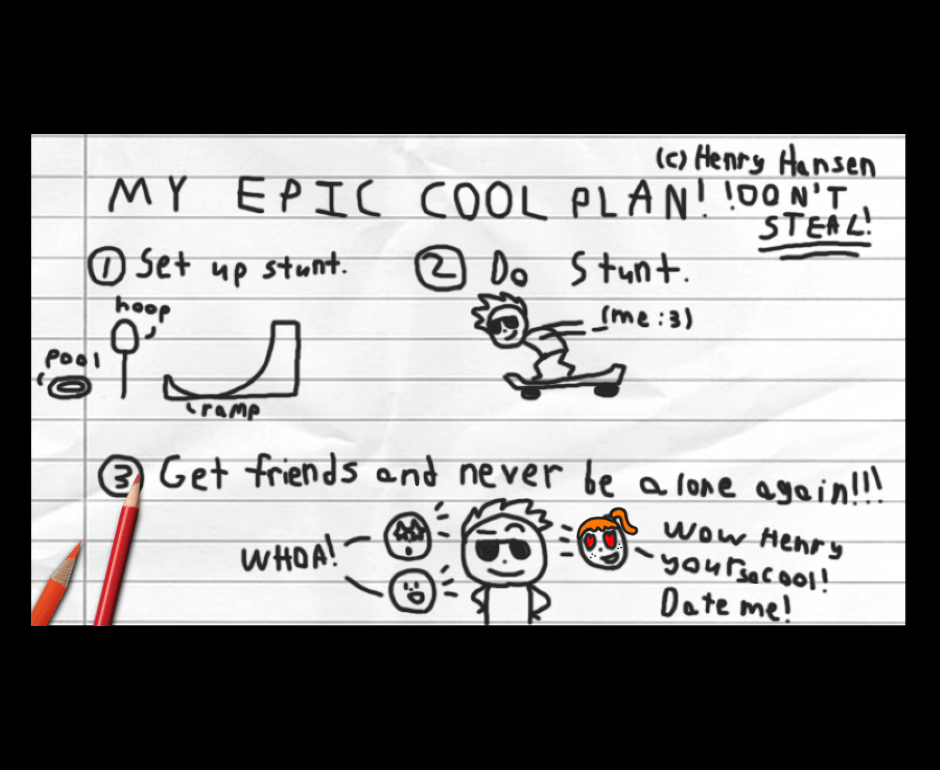 (c) Henry Hansen
MY EPIC COOL PLAN! !DON'T
STEAL!
① Set up stunt.
② Do Stunt.
hoop
pool
ramp
(me :3)
③ Get friends and never be alone again!!!
WHOA!
Wow Henry
your so cool!
Date me!